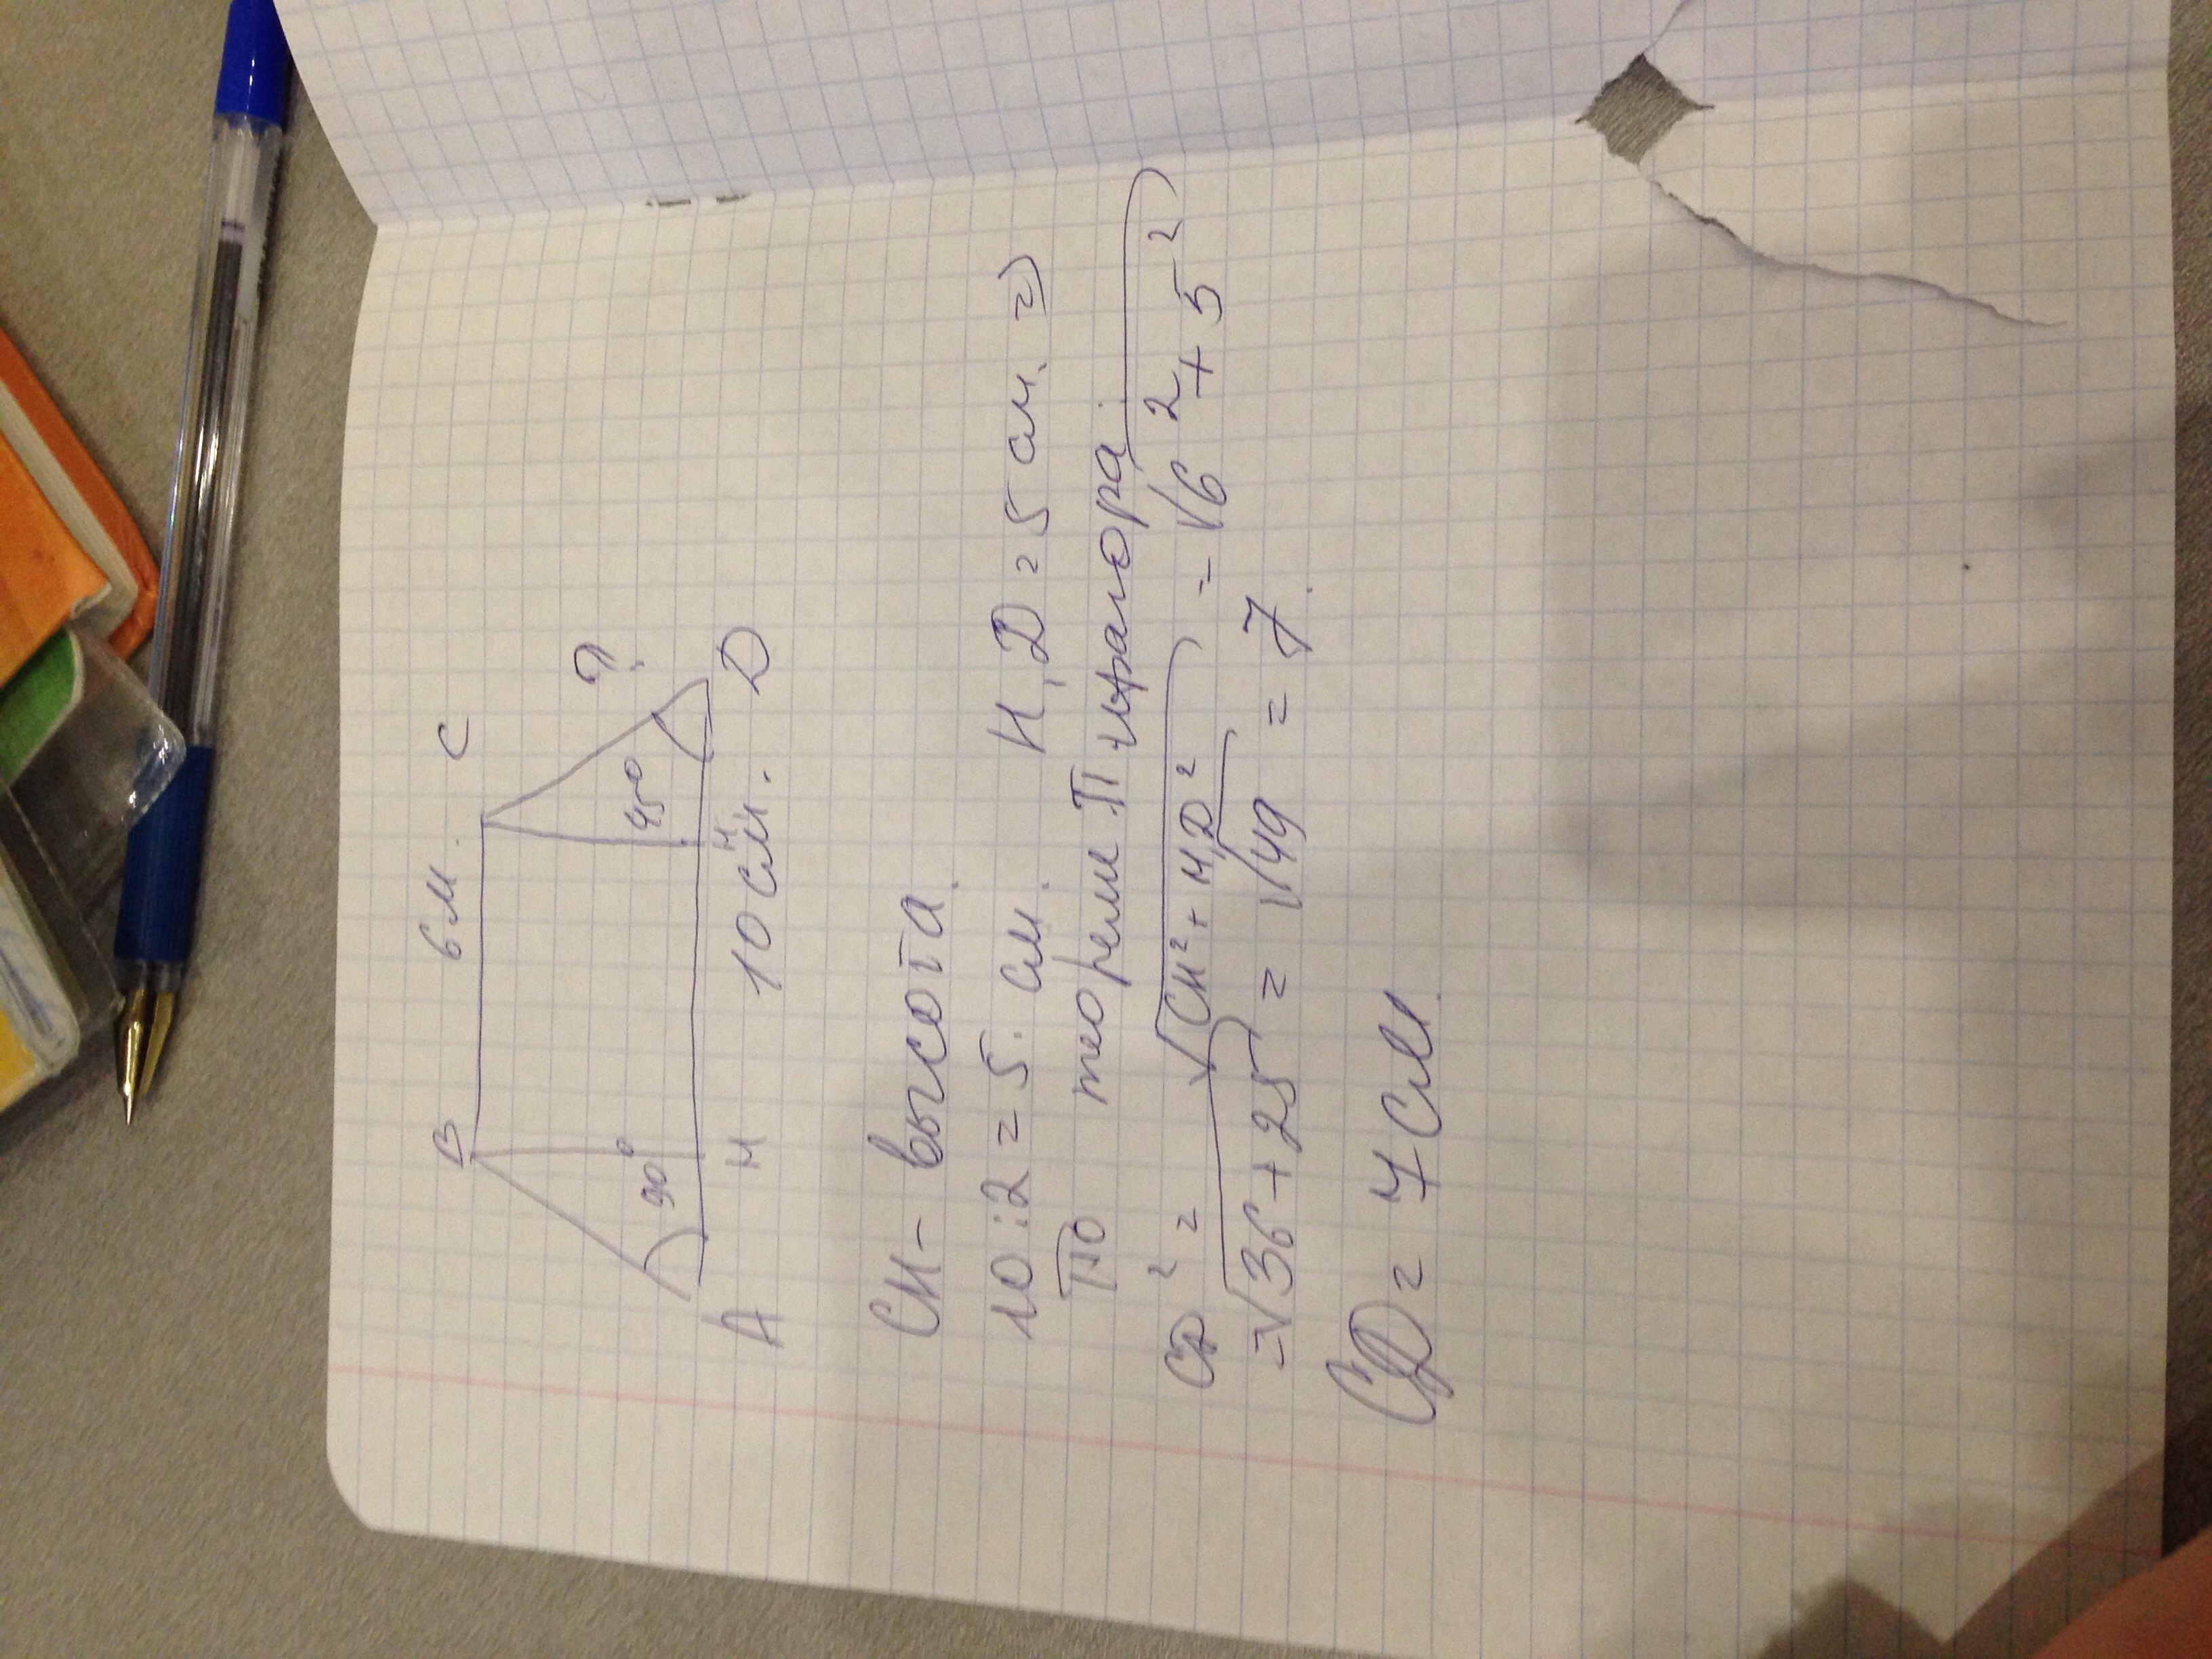 B 6м. C
90° 45° ?
A H 10 см. H Д
CH - высота.
10:2=5. см. H,Д=5 см. ⇒
По теореме Пифагора.
CД² = √CH²+H,Д² = √6²+5²
=√36+25 = √49 = 7.
CД = 7 см.